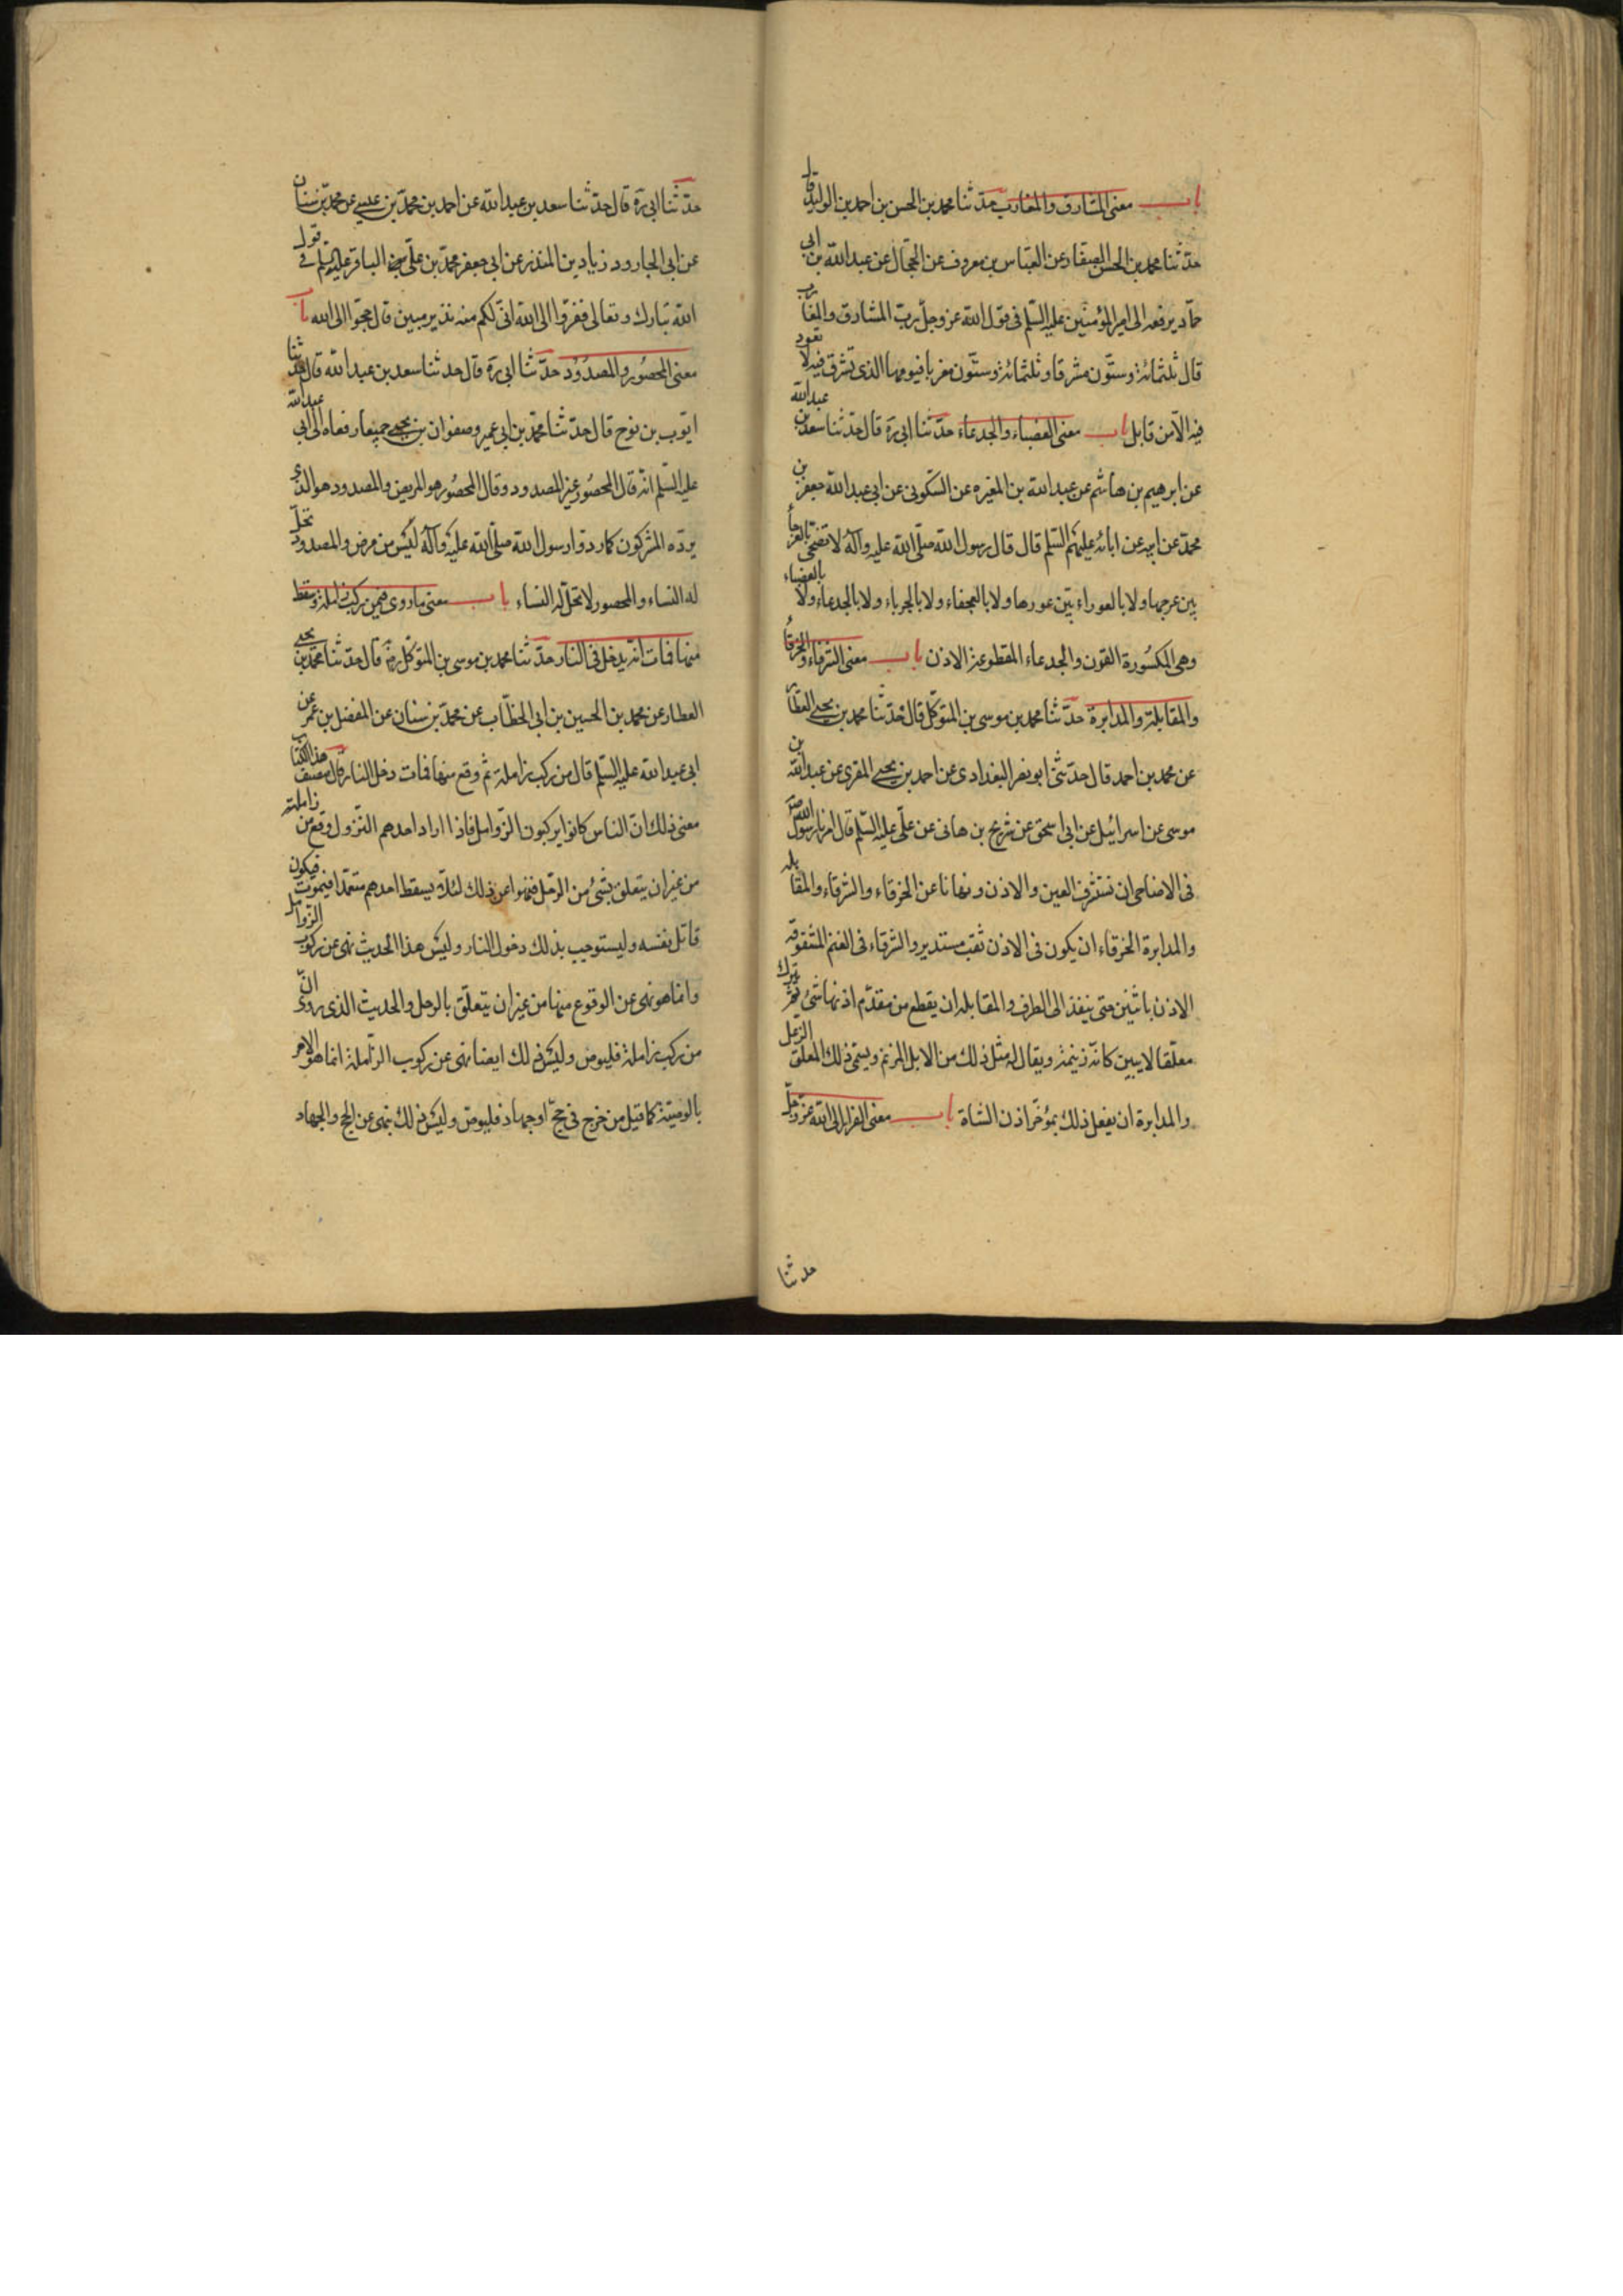 باب معنى المشارق والمغارب حدّثنا محمد بن الحسن بن احمد بن الوليد قال
حدّثنا محمد بن الحسن الصفار عن العبّاس بن معروف عن الحجّال عن عبد الله بن ابى
حمّاد يرفعه الى امير المؤمنين عليه السّلم فى قول الله عز وجلّ ربّ المشارق والمغارب
قال ثلثمائة وستّون مشرقا وثلثمائة وستّون مغربا فيومها الذى تشرق فيه لا تعود
فيه الّا من قابل باب معنى العضباء والجدعاء حدّثنا ابى ره قال حدّثنا سعد بن عبد الله
عن ابرهيم بن هاشم عن عبد الله بن المغيره عن السّكونى عن ابى عبد الله جعفر بن
محمّد عن ابيه عن ابائه عليهم السّلم قال قال رسول الله صلّى الله عليه وآله لا تضحى بالعرجآء
بين عرجها ولا بالعوراء بيّن عورها ولا بالعجفاء ولا بالجرباء ولا بالجدعاء ولا بالعضباء
وهى المكسورة القرن والجدعاء المقطوعة الاذن باب معنى الشرقاء والخرقآء
والمقابلة والمدابرة حدّثنا محمد بن موسى بن المتوكّل قال حدّثنا محمد بن يحيى العطّار
عن محمد بن احمد قال حدّثنى ابو نصر البغدادى عن احمد بن يحيى المقرى عن عبد الله بن
موسى عن اسرائيل عن ابى اسحق عن شريح بن هانى عن علّى عليه السّلم قال امرنا رسول الله ص
فى الاضاحى ان نستشرف العين والاذن ونهانا عن الخرقاء والشرقاء والمقابله
والمدابرة الخرقاء ان يكون فى الاذن ثقب مستدير والشرقاء فى الغنم المشقوقه
الاذن باثنين حتى ينفذ الى الطرف والمقابله ان يقطع من مقدّم اذنها شئ ثمّ يترك
معلّقا لا يبين كانّه زنيمة ويقال له مثل ذلك من الابل المزنم ويسمّى ذلك المعلّق الرّعل
والمدابرة ان يفعل ذلك بمؤخّر اذن الشاة باب معنى الفرار الى الله عزّ وجلّ
حدثنا
حدّثنا ابى ره قال حدّثنا سعد بن عبد الله عن احمد بن محمّد بن عيسى عن محمّد بن سنان
عن ابى الجارود زياد بن المنذر عن ابى جعفر محمّد بن علّى الباقر عليه السّلم فى قول
الله تبارك وتعالى ففرّوا الى الله انّى لكم منه نذير مبين قال حجّوا الى الله باب
معنى المحصُور والمصدُود حدّثنا ابى ره قال حدثنا سعد بن عبد الله قال حدّثنا
ايّوب بن نوح قال حدّثنا محمّد بن ابى عمير وصفوان بن يحيى جميعا رفعاه الى ابى عبد الله
عليه السّلم انّه قال المحصُور غير المصدود وقال المحصُور هو المريض والمصدود هو الذى
يردّه المشركون كما ردّوا رسول الله صلّى الله عليه وآله ليس من مرض والمصدود تحلّ
له النساء والمحصور لا تحلّ له النساء باب معنى ما روى فيمن ركب زاملة وسقط
منها فمات انّه يدخل فى النار حدّثنا محمد بن موسى بن المتوكّل ره قال حدّثنا محمّد بن يحيى
العطار عن محمد بن الحسين بن ابى الخطّاب عن محمّد بن سنان عن المفضل بن عمر عن
ابى عبد الله عليه السّلم قال من ركب زاملة ثمّ وقع منها فمات دخل النار قال مصنف هذا الكتاب
معنى ذلك انّ الناس كانوا يركبون الزّوامل فاذا اراد احدهم النّزول وقع من زاملته
من غير ان يتعلق بشئ من الرحل فنهوا عن ذلك لئلّا يسقط احدهم متعمّدا فيموت فيكون
قاتل نفسه وليستوجب بذلك دخول النار وليس هذا الحديث نهى عن ركوب الزّوامل
وانما هو نهى عن الوقوع منها من غير ان يتعلّق بالرحل والحديث الذى روى انّ
من ركب زاملة فليوص وليس ذلك ايضا نهى عن ركوب الزّاملة انما هو الامر
بالوصيّة كما قيل من خرج فى حجّ او جهاد فليوص وليس ذلك نهى عن الحج والجهاد